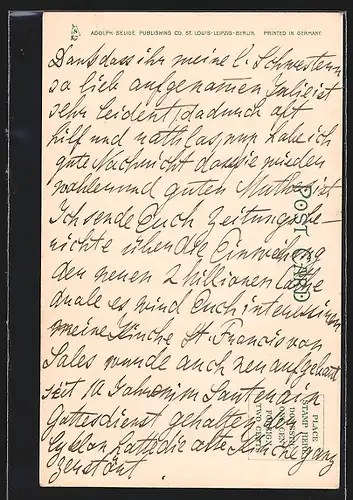 ADOLPH SELIGE PUBLISHING CO. ST. LOUIS-LEIPZIG-BERLIN. PRINTED IN GERMANY.
Dank dass ihr meine l. Schwestern
so lieb aufgenommen Julie ist
sehr leidend, dadurch oft
hilf und rathlos, nun habe ich
gute Nachricht dass sie wieder
wohler und guten Muthes ist
Ich sende Euch Zeitungsbe-
richte über die Einweihung
der neuen 2 Millionen Cathe
drale es wird Euch interessieren
meine Kirche St. Francis von
Sales wurde auch neu aufgebaut
seit 10 Jahren im
Gottesdienst gehalten
Cyklon hatte die alte Kirche ganz
zerstört
POST CARD
PLACE
STAMP HERE
DOMESTIC
ONE CENT
FOREIGN
TWO CENTS